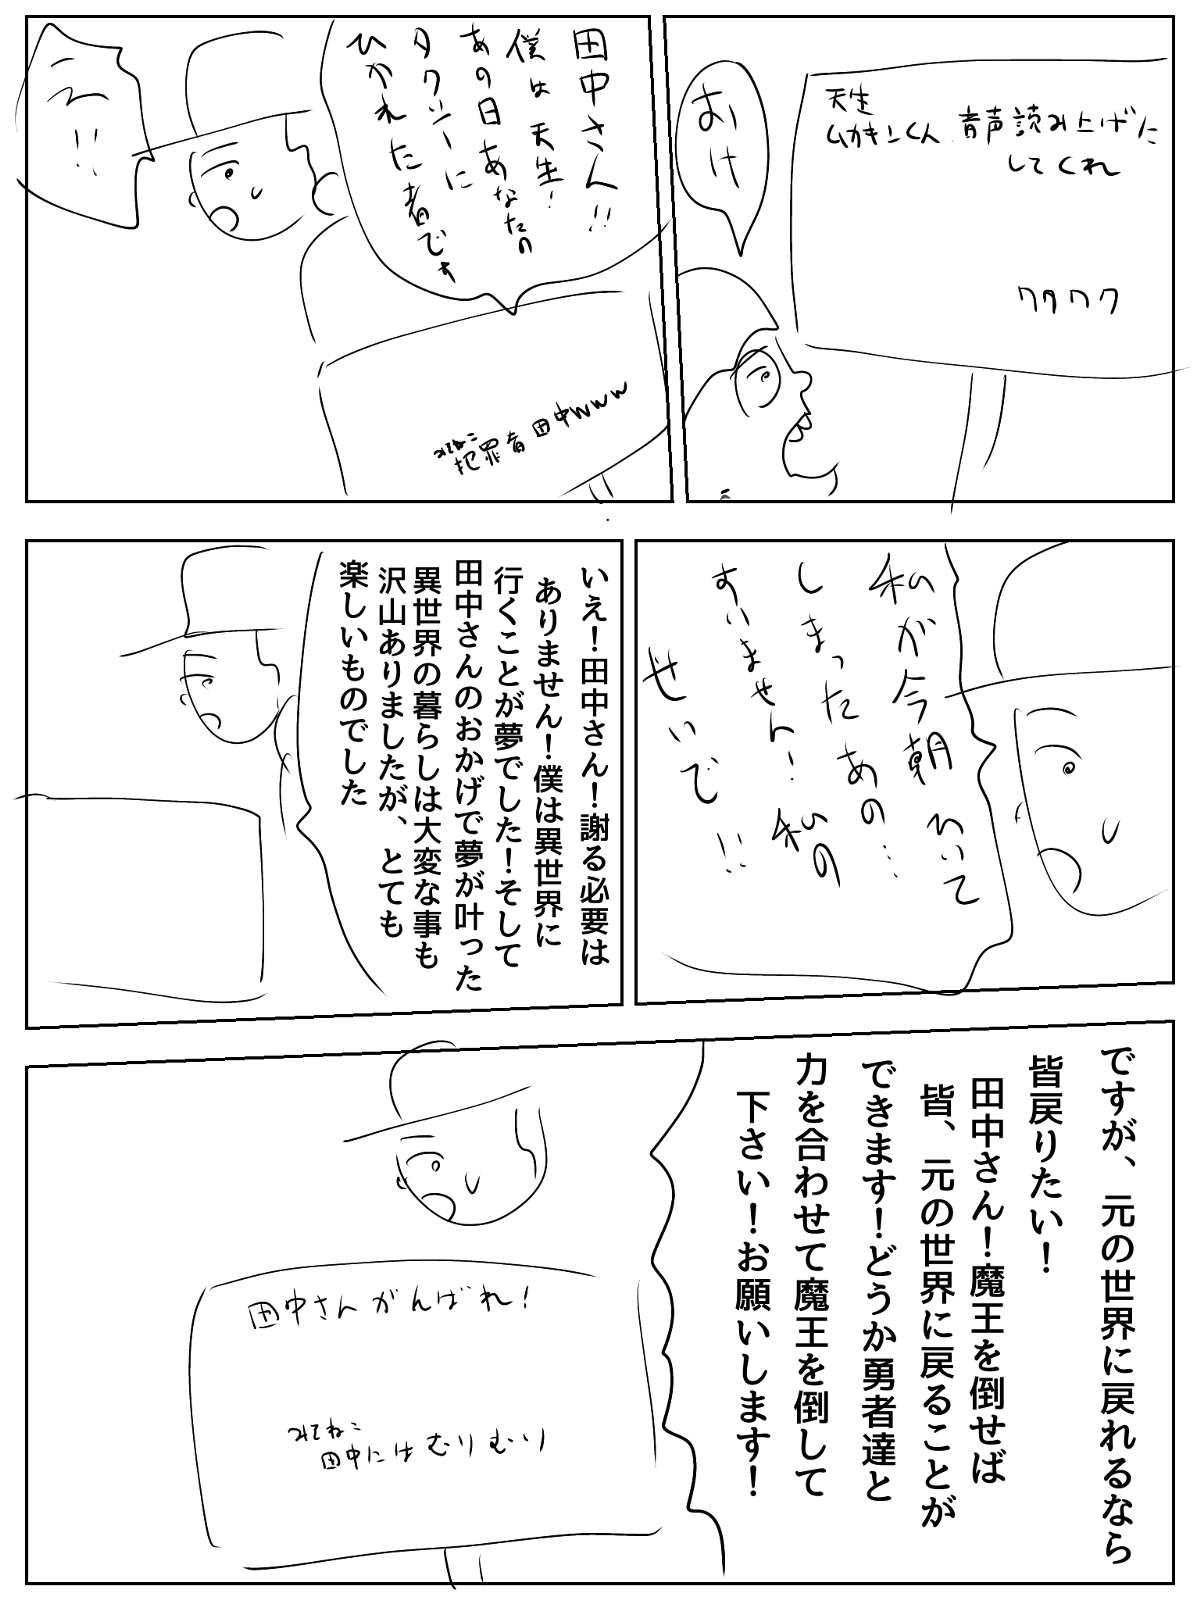 天生
ムカキンくん 音声読み上げに
してくれ
ワクワク
おけ
田中さん!!
僕は天生!
あの日あなたの
タクシーに
ひかれた者です
え!!
みてねこ
犯罪者田中www
私が今朝ひいて
しまったあの…
すいません!私の
せいで!!
いえ!田中さん!謝る必要は
ありません!僕は異世界に
行くことが夢でした!そして
田中さんのおかげで夢が叶った
異世界の暮らしは大変な事も
沢山ありましたが、とても
楽しいものでした
ですが、元の世界に戻れるなら
皆戻りたい!
田中さん!魔王を倒せば
皆、元の世界に戻ることが
できます!どうか勇者達と
力を合わせて魔王を倒して
下さい!お願いします!
田中さんがんばれ!
みてねこ
田中にはむりむり